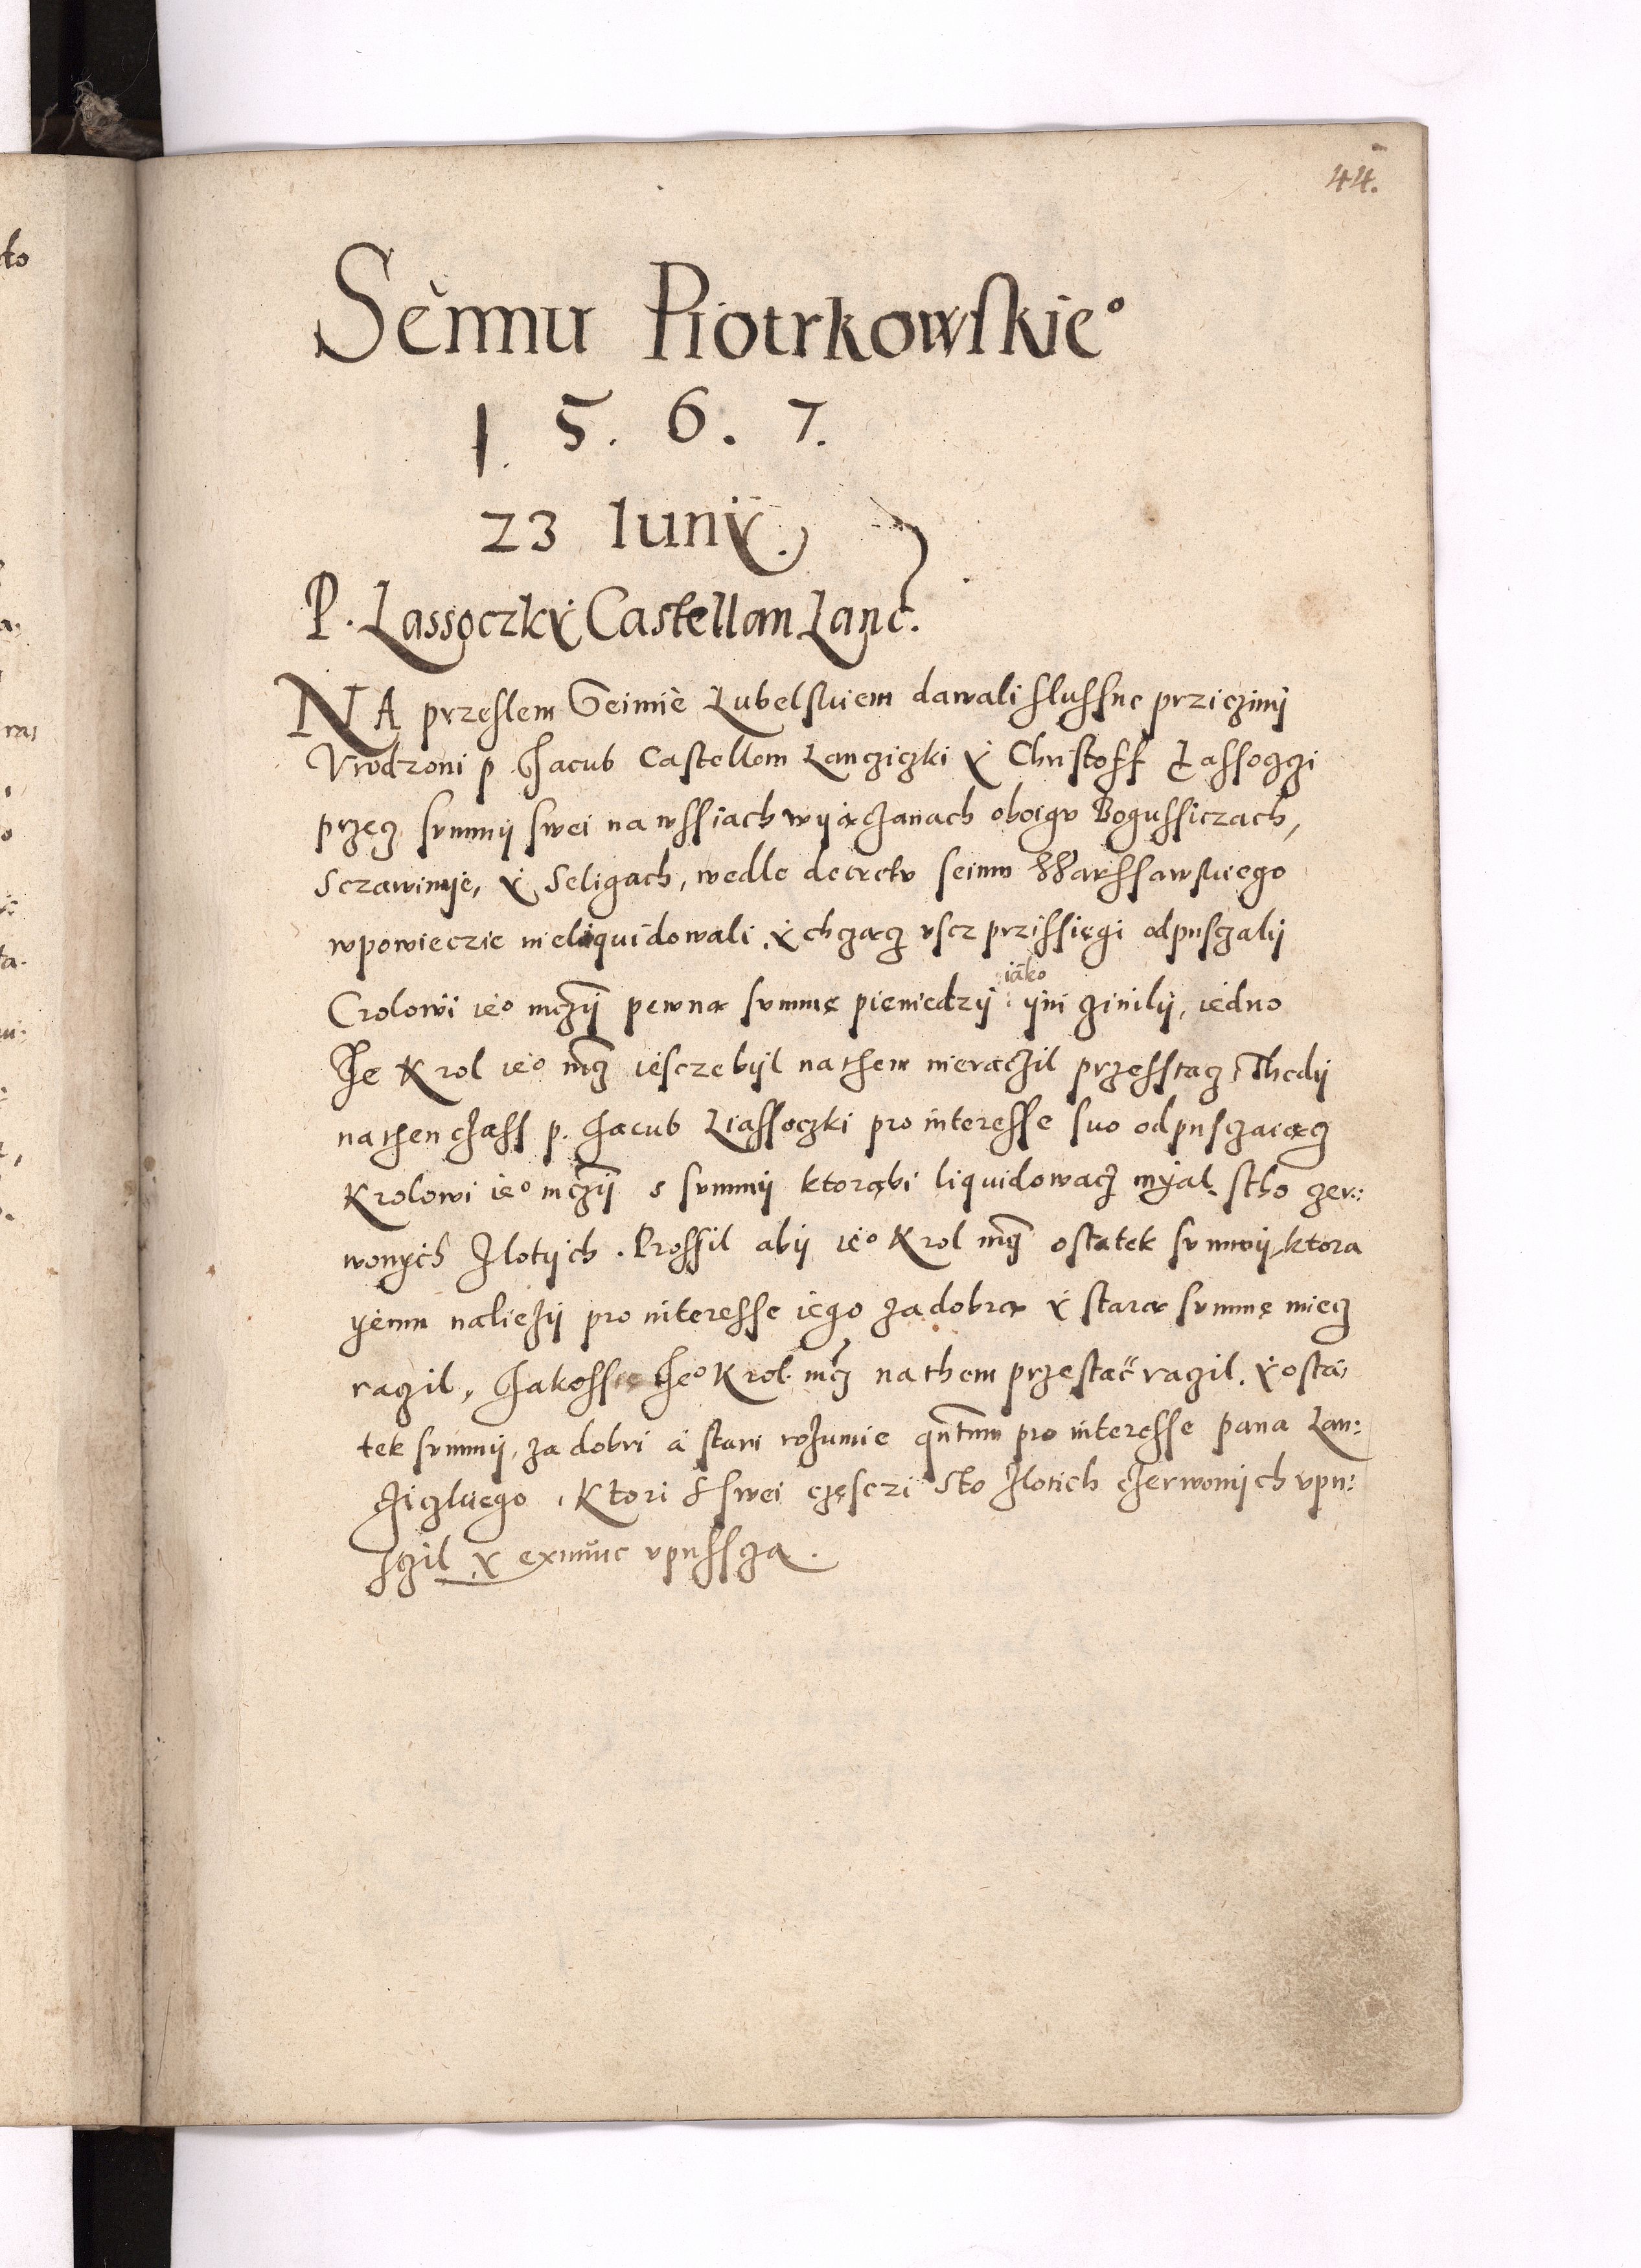 44.
Sèmnu Piotrkowskie°
1. 5. 6. 7.
23 Iunÿ.
P. Lassoczkÿ Castellan Lanc.
NA przeslem Seimiè Lubelskiem dawali slussne przicziny
Vrodzoni p. Jacub Castellan Lancziczki ÿ Christoff Lassoczki
przecz summÿ swei na wssiach wÿ oboigu Bogussiczach,
Sczawinÿe, ÿ Seligach, wedle decretu seimu Warssawskiego
wpowieczie nieliquidowali, ÿ chcząncz vscz przissięgi odpusczalÿ
Crolowi ie° mczÿ pewną summę pieniedzÿ iáko ÿni czinilÿ, iedno
Że Krol ie° mcz iescze bÿl nathem nieraczil przesstacz, Thedÿ
nathen czass p. Jacub Liassoczki pro interesse suo odpusczaiącz
Krolowi ie° mczÿ s summÿ ktorąbi liquidowacz mÿal stho czer:
wonÿch zlotÿch. Prossil abÿ ie° Krol mcz ostatek summÿ, ktora
ÿemu nalieżÿ pro interesse iego zadobrą ÿ starą summę miecz
raczil, Jakossie Je° Krol. mcz nathem przestać raczil, ÿ osta
tek summÿ, za dobri á stari rozumie quantum pro interesse pana Lan:
cziczkiego, Ktori S swei częsczi Sto zlotich czerwonÿch vpu:
sczil ÿ exnunc vpussza.